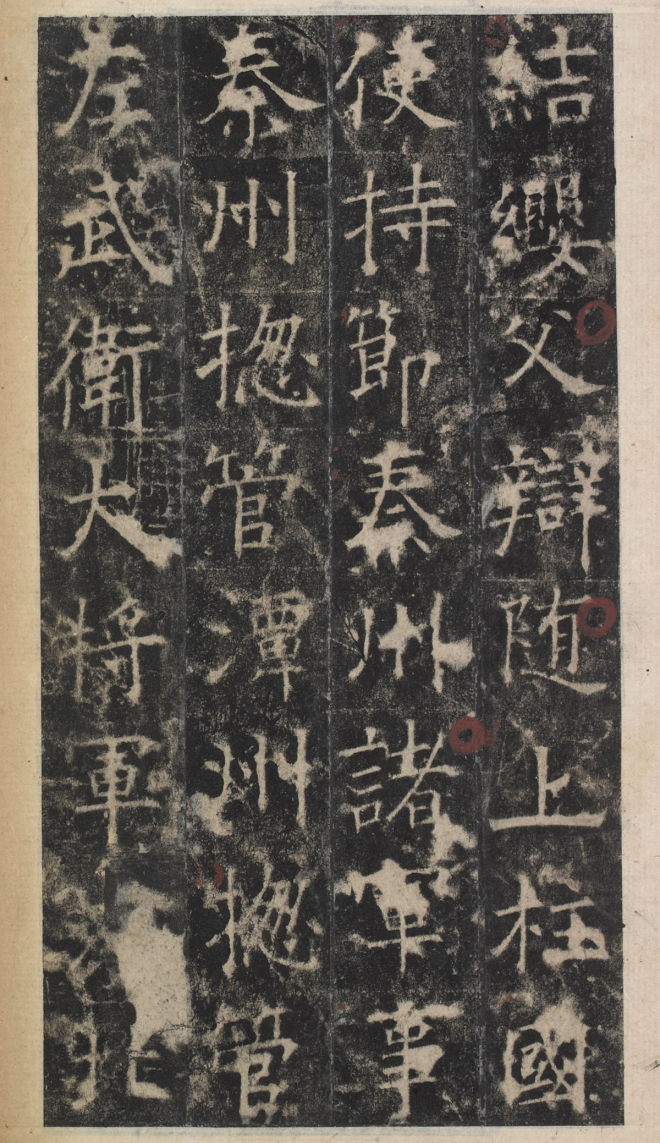 結纓父辯随上柱國
使持節秦州諸軍事
秦州揔管潭州揔管
左武衛大將軍